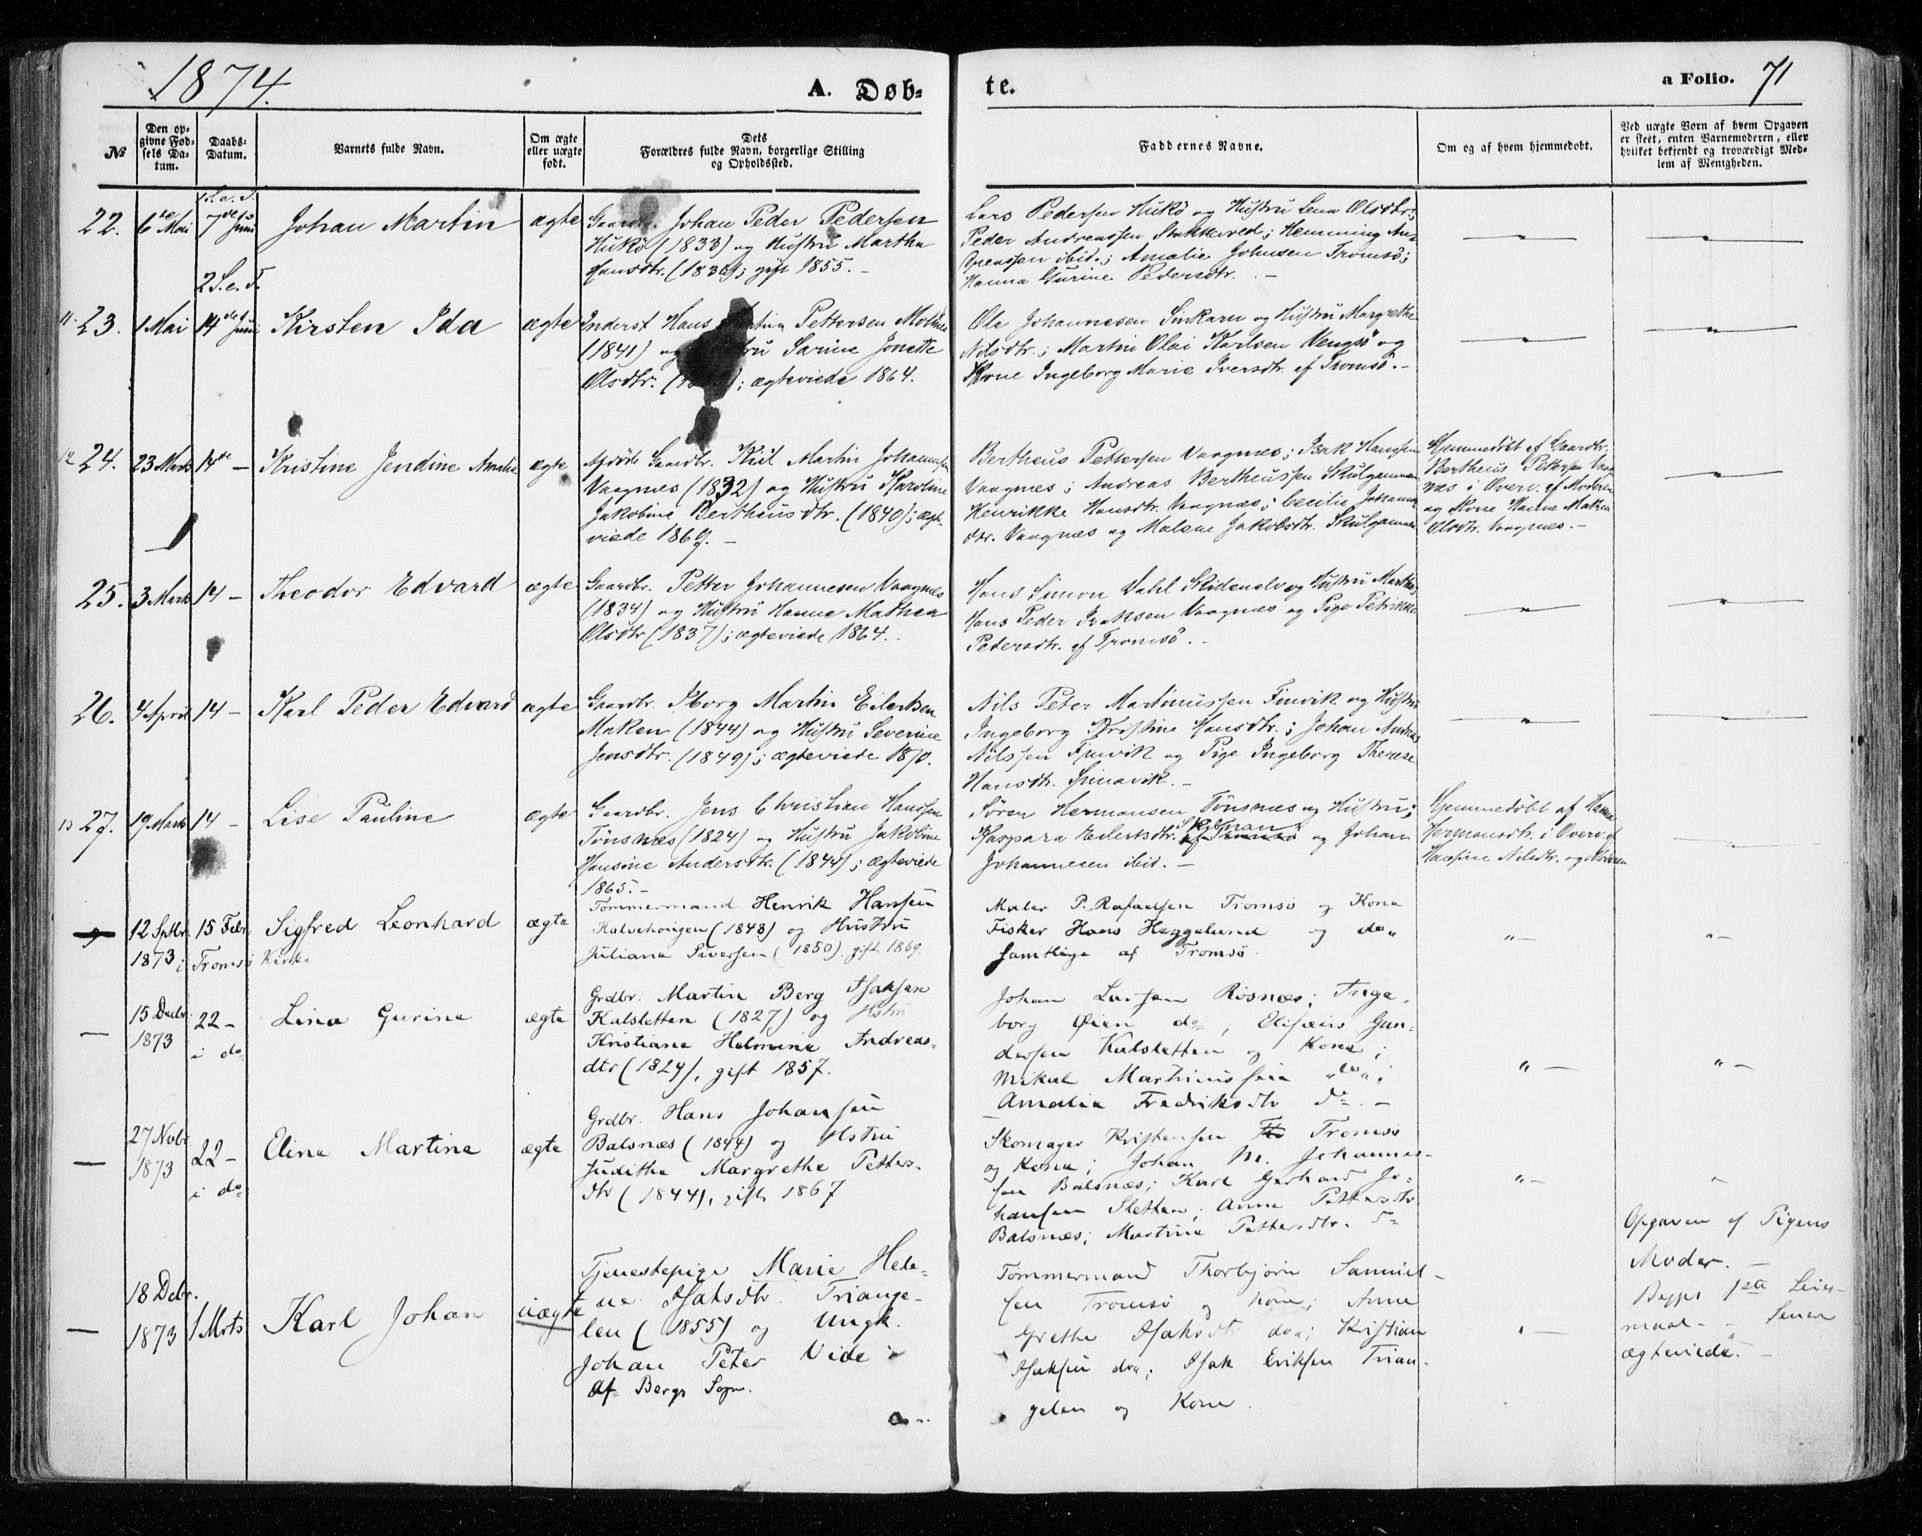 1874.
A. Døb-
te.
a Folio. 71
№
Den op-
givne Fød-
sels Da-
tum.
Daabs-
Datum.
Barnets fulde Navn.
Om ægte
eller uægte
født.
Dets
Forældres fulde Navn, borgerlige Stilling
og Opholdssted.
Faddernes Navne.
Om og af hvem hjemmedøbt.
Ved uægte Børn af hvem Opgaven
er skeet, enten Barnemoderen, eller
hvilket bekjendt og troværdigt Med-
lem af Menigheden.
22.
6te Mai
1 S. e. T.
7de Juni
Johan Martin
ægte
Gaardbr. Johan Peder Pedersen
Hukø (1833) og Hustru Martha
Hansdtr. (1836); gift 1855.-
Lars Pedersen Hukø og Hustru Lena Olsdtr;
Peder Andreassen Stakkevold; Hemming An-
dreassen ibid.; Amalie Johnsen Tromsø;
Hanna Gurine Pedersdtr. -
23.
1 Mai
2 S. e. T.
14de Juni
Kirsten Ida
ægte
Inderst Hans Pettersen
(1841) og Sarine Jonette
Olsdtr. ; ægteviede 1864.
Ole Johannesen Sinkarn og Hustru Margrethe
Nilsdtr.; Martin Olai Karlsen Vengsø og
Kone Ingeborg Marie Iversdtr. af Tromsø.-
24.
23 Marts
14de -
Kristine Jendine Amalie
ægte
Afdøde Gaardbr. Kiil Martin Johannesen
Vaagnes (1832) og Hustru Karoline
Jakobine Bertheusdtr. (1840); ægt-
viede 1869. -
Bertheus Pettersen Vaagnes; Isak Hanssen
Vaagnes; Andreas Bertheussen Skulgammen
Henrikke Hansdtr. Vaagnæs; Cecilie Johanne
dtr. Vaagnæs og Malene Jakobsdtr. Skulgammen
Hjemmedøbt af Gaardbr.
Bertheus Pettersen Vaag
næs i Overv. af Moderen
og Kone Hanne Mathea
Olsdtr. Vaagnæs. -
25.
3 Marts
14 -
Theodor Edvard
ægte
Gaardbr. Petter Johannesen Vaagnæs
(1834) og Hustru Hanne Mathea
Olsdtr (1837); ægteviede 1864.
Hans Simon Dahl Skidenelv og Hustru Marthe;
Hans Peder Isaksen Vaagnæs og Pige Petrikke
Petersdtr. af Tromsø. -
26.
4 April
14 -
Karl Peder Edvard
ægte
Gaardbr. Iborg Martin Eilertsen
Maken (1844) og Hustru Severine
Jensdtr. (1849); ægteviede 1870.
Nils Peter Martinussen Finvik og Hustru
Ingeborg Kristine Hansdtr.; Johan Andreas
Nilssen Finvik og Pige Ingeborg Therese
Hansdtr. Finnvik. -
27.
19 Marts
14 -
Lise Pauline
ægte
Gaardbr. Jens Christian Hanssen
Tønsnæs (1824) og Hustru Jakobine
Hansine Andersdtr. (1844); ægteviede
1865. -
Søren Hermansen Tønsnæs og Hustru;
Kaspara Eilertsdtr. og Johan
Johannesen ibid. -
Hjemmedøbt af
Hermansdtr. i Overv. af
Hansine Nilsdtr. og Moderen
12 Septbr
1873
15 Febr
i Tromsø Kirke
Sigfred Leonhard
ægte
Tømmermand Henrik Hansen
Kalvehougen (1848) og Hustru
Juliana Sivertsen (1850), gift 1869.
Maler P. Rafaelsen Tromsø og Kone
Fisker Hans Heggelund og do„
samtlige af Tromsø.
15 Decbr
1873
22 -
i do
Lina Gurina
ægte
Grdbr. Martin Berg Isaksen
Kalsletten (1827) og Hstru
Kristiane Helmine Andreas-
dtr (1829), gift 1857.
Johan Larsen Røsnæs; Inge-
borg Øien do; Elisæus Gun-
dersen Kalsletten og Kone;
Mikal Martinussen do;
Amalia Fredriksdtr do. -
27 Novbr
1873
22 -
i do
Elina Martina
ægte
Grdbr. Hans Johansen
Balsnæs (1844) og Hstru
Juditha Margrethe Petters-
dtr (1844), gift 1867
Skomager Kristensen Tromsø
og Kone; Johan M. Johannes-
sen Balsnæs; Karl Gerhard Jo-
hansen Sletten; Anna Pettersdtr
Balsnæs; Martine Pettersdtr. do
18 Decbr.
1873
1 Mrts
Karl Johan
uægte
Tjenestepige Marie Hele-
ne Isaksdtr. Triange-
len (1855) og Ungk.
Johan Peter Vide
af Bergs Sogn.
Tømmermand Thorbjørn Samuel-
sen Tromsø og Kone; Anne
Grethe Isaksdtr do; Kristian
Isaksen do; Isak Eriksen Trian-
gelen og Kone.
Opgaven af Pigens
Moder. -
Begges 1ste Leier-
maal - Senere
ægteviede. -